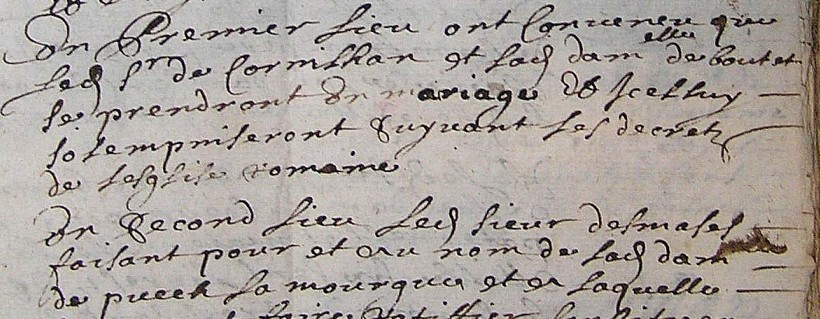 En Premier lieu ont Convenu que
led sr de Cornilhan et lad dam elle de boutet
se prendront En mariage & Icelluy
solempniseront Suyvant les decretz
de lesglise romaine
En Second lieu led sieur desmases
faisant pour et au nom de lad dam
de puech la mourque et a laquelle
faire Ratiffier